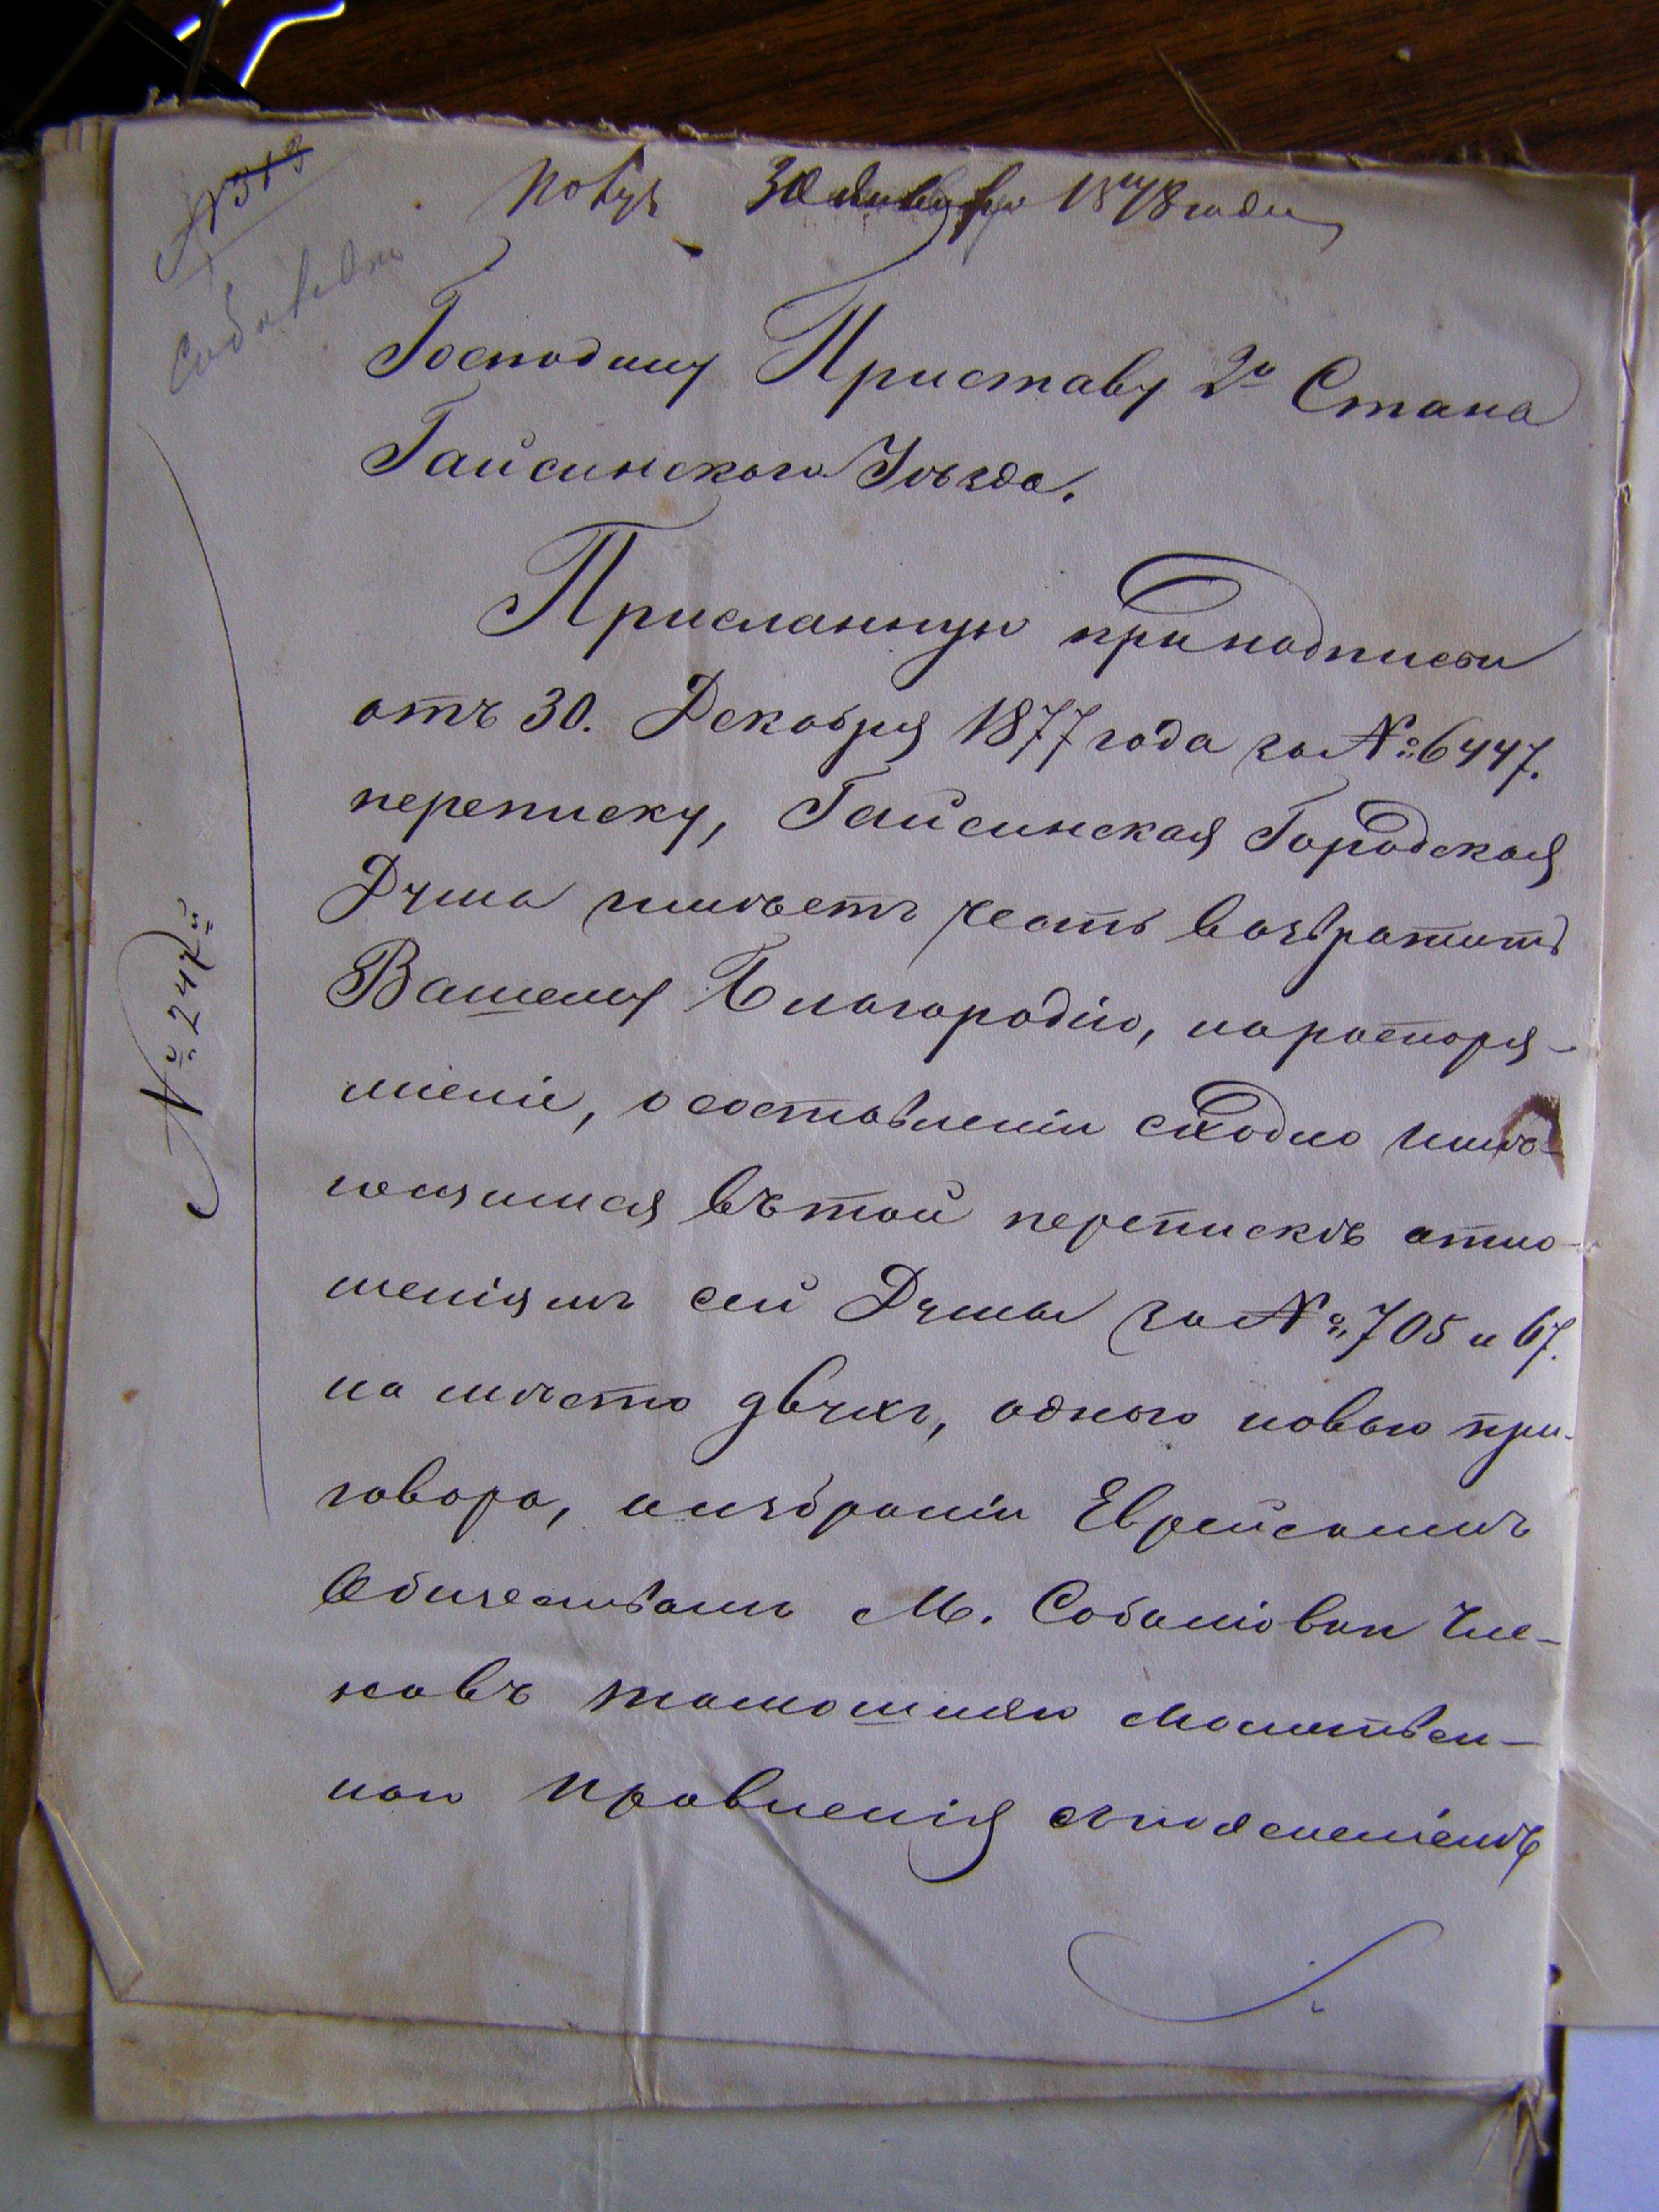 № 313
Собалевка
Получ 30 Января 1878 года
Господину Приставу 2го Стана
Гайсинского Уѣзда.
Присланную при надписи
отъ 30. Декабря 1877 года за № 6447.
переписку, Гайсинская Городская
Дума имѣетъ честь возвратить
Вашему Благородію, на распоря-
женіе, о составленіи сходно имѣ-
ющимся въ той перепискѣ отно-
шеніямъ сей Думы за № 705 и 67.
на мѣсто двухъ, одного новаго при-
говора, о избраніи Еврейскимъ
Обществомъ М. Собалювки Чле-
новъ тамошняго Молитвен-
наго Правленія съ поясненіемъ
№ 247й